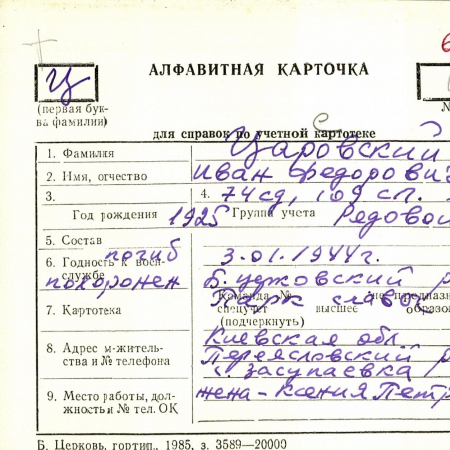 Ц
АЛФАВИТНАЯ КАРТОЧКА
(первая бук-
ва фамилии)
№
для справок по учетной картотеке
1. Фамилия Царовский
2. Имя, отчество Иван Федорович
3. 4. 74 сд, 109 сп.
Год рождения 1925 Группа учета Редовой
5. Состав погиб 3.01.1944г.
6. Годность к воен-
службе похоронен Б. уджовский р
Команда № не предназ
Парк славы
7. Картотека спецучет высшее образо
(подчеркнуть)
Киевская обл.
8. Адрес м-житель-
ства и № телефона Переясловский р
с Засупаевка
9. Место работы, дол-
жность и № тел. ОК жена - Ксения Петр
Б. Церковь, гортип., 1985, з. 3589—20000